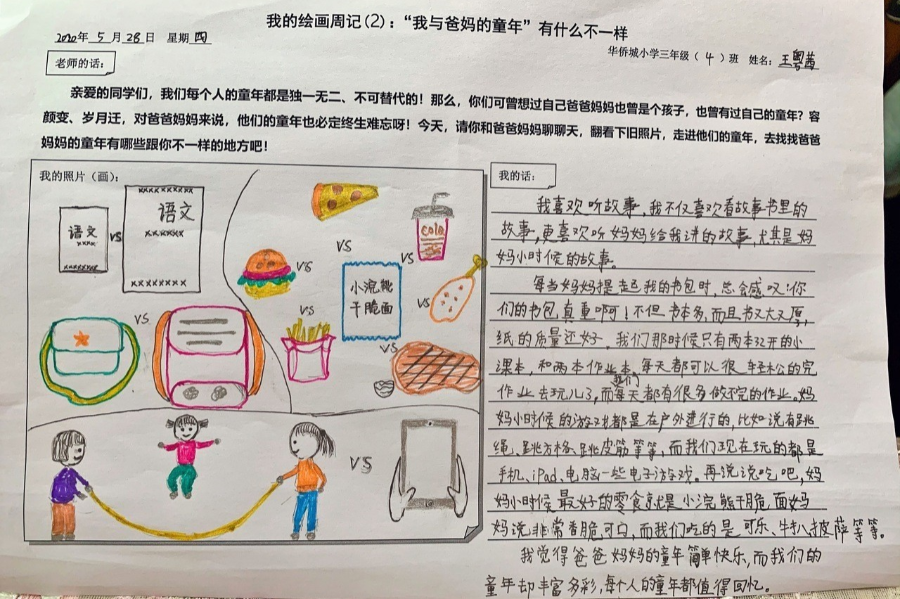 我的绘画周记(2):“我与爸妈的童年”有什么不一样
2020年 5 月 28 日 星期 四
华侨城小学三年级( 4 )班 姓名:王粤茜
老师的话:
亲爱的同学们,我们每个人的童年都是独一无二、不可替代的!那么,你们可曾想过自己爸爸妈妈也曾是个孩子,也曾有过自己的童年?容
颜变、岁月迁,对爸爸妈妈来说,他们的童年也必定终生难忘呀!今天,请你和爸爸妈妈聊聊天,翻看下旧照片,走进他们的童年,去找找爸爸
妈妈的童年有哪些跟你不一样的地方吧!
我的照片(画):
语文
xxxx
xxxxxxx
vs
xxxxxxxxx
语文
xxxxxx
xxxxxxxx
VS
cola
VS
VS
小浣熊
干脆面
VS
VS
VS
VS
VS
我的话:
我喜欢听故事,我不仅喜欢看故事书里的
故事,更喜欢听妈妈给我讲的故事,尤其是妈
妈小时候的故事。
每当妈妈提起我的书包时,总会感叹:你
们的书包真重啊!不但书本多,而且书又大又厚,
纸的质量还好。我们那时候只有两本32开的小
课本,和两本作业本。每天都可以很轻松的完
作业去玩儿了,而我们每天都有很多做不完的作业。妈
妈小时候的游戏都是在户外进行的,比如说有跳
绳、跳方格、跳皮筋等等,而我们现在玩的都是
手机、iPad、电脑一些电子游戏。再说说吃吧,妈
妈小时候最好的零食就是小浣熊干脆面妈
妈说非常香脆可口,而我们吃的是可乐、牛扒、披萨等等。
我觉得爸爸妈妈的童年简单快乐,而我们的
童年却丰富多彩,每个人的童年都值得回忆。